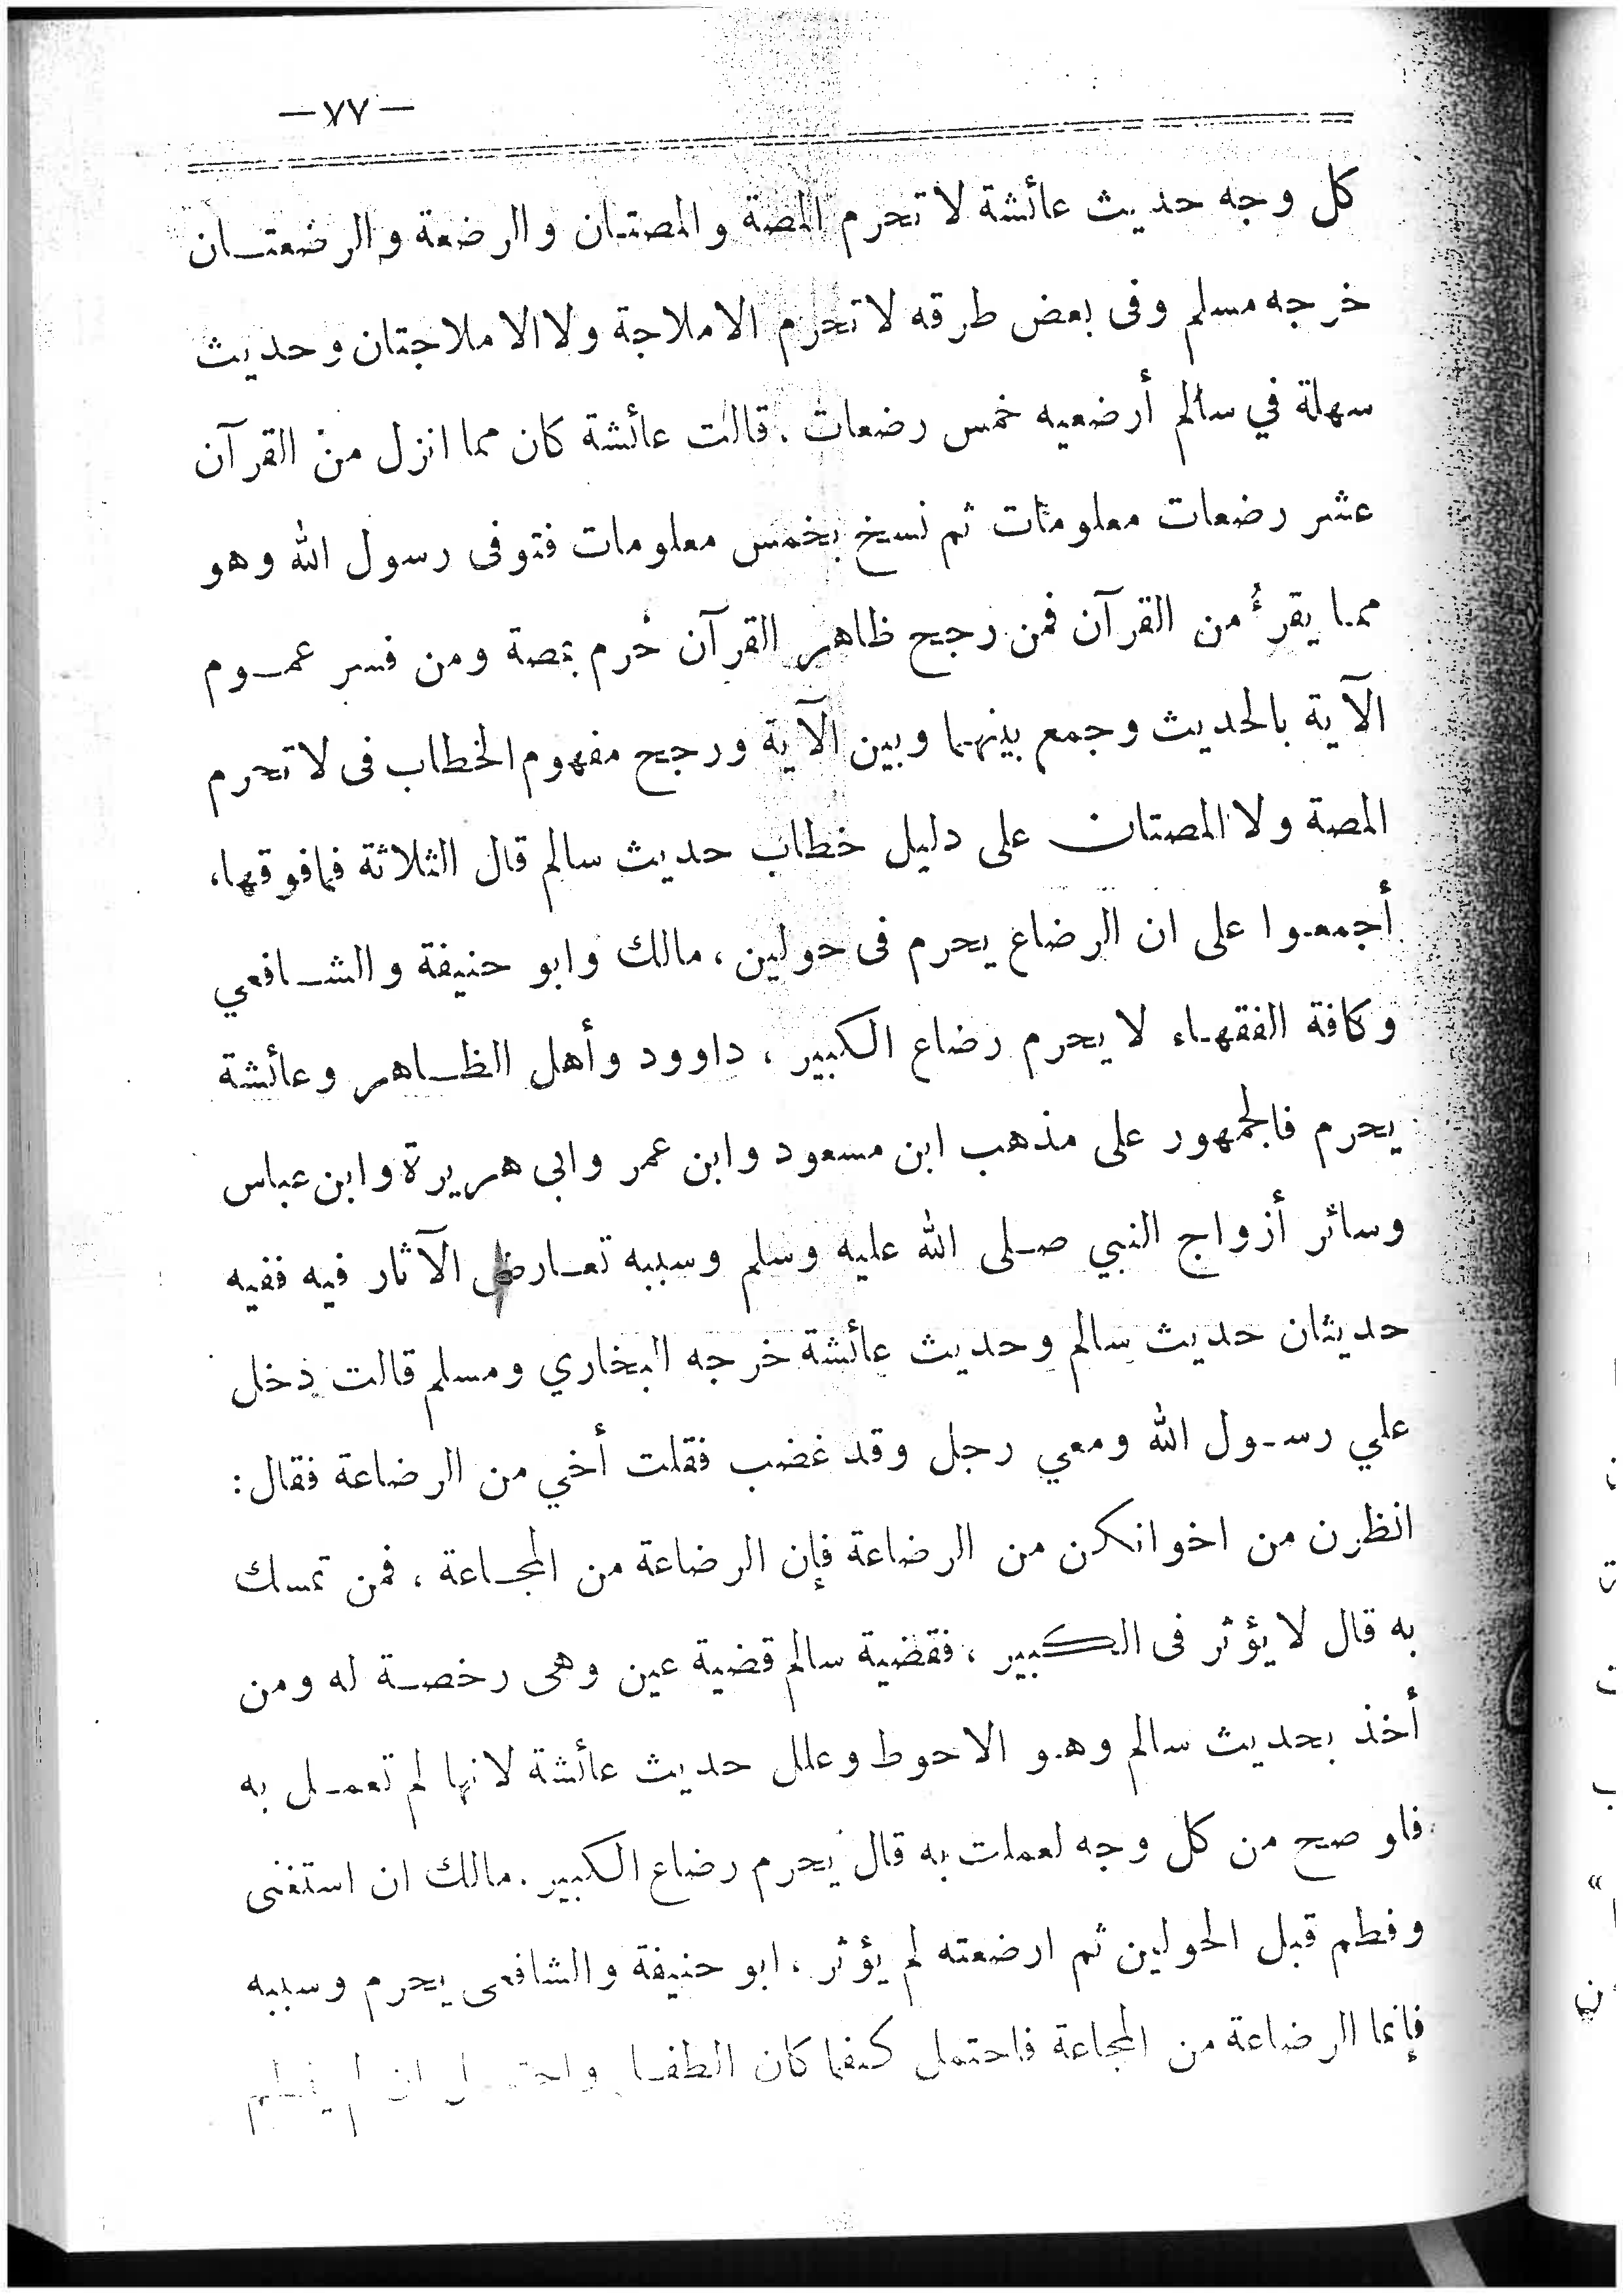 —٧٧—
كل وجه حديث عائشة لا تحرم المصة والمصتان والرضعة والرضعتــان
خرجه مسلم وفى بعض طرقه لا تحرم الاملاجة ولا الاملاجتان وحديث
سهلة في سالم أرضعيه خمس رضعات . قالت عائشة كان مما انزل من القرآن
عشر رضعات معلومات ثم نسخ بخمس معلومات فتوفى رسول الله وهو
ممـا يقرأُ من القرآن فمن رجح ظاهر القرآن حُرم بمصة ومن فسر عمــوم
الآية بالحديث وجمع بينهـما وبين الآية ورجح مفهوم الخطاب فى لا تحرم
المصة ولا المصتان على دليل خطاب حديث سالم قال الثلاثة فمافوقها،
أجمعـوا على ان الرضاع يحرم فى حولين ، مالك وابو حنيفة والشــافعي
وكافة الفقهـاء لا يحرم رضاع الكبير ، داوود وأهل الظــاهر وعائشة
يحرم فالجمهور على مذهب ابن مسعود وابن عمر وابى هريرة وابن عباس
وسائر أزواج النبي صـلى الله عليه وسلم وسببه تعـارض الآثار فيه ففيه
حديثان حديث سالم وحديث عائشة خرجه البخاري ومسلم قالت دخل
علي رسـول الله ومعي رجل وقد غضب فقلت أخي من الرضاعة فقال :
انظرن من اخوانكن من الرضاعة فإن الرضاعة من المجـاعة ، فمن تمسك
به قال لا يؤثر فى الكبير ، فقضية سالم قضية عين وهى رخصــة له ومن
أخذ بحديث سالم وهـو الاحوط وعلل حديث عائشة لانها لم تعمـل به
فلو صح من كل وجه لعملت به قال يحرم رضاع الكبير . مالك ان استغنى
وفطم قبل الحولين ثم ارضعته لم يؤثر ، ابو حنيفة والشافعى يحرم وسببه
فإنما الرضاعة من المجاعة فاحتمل كيفما كان الطفـل